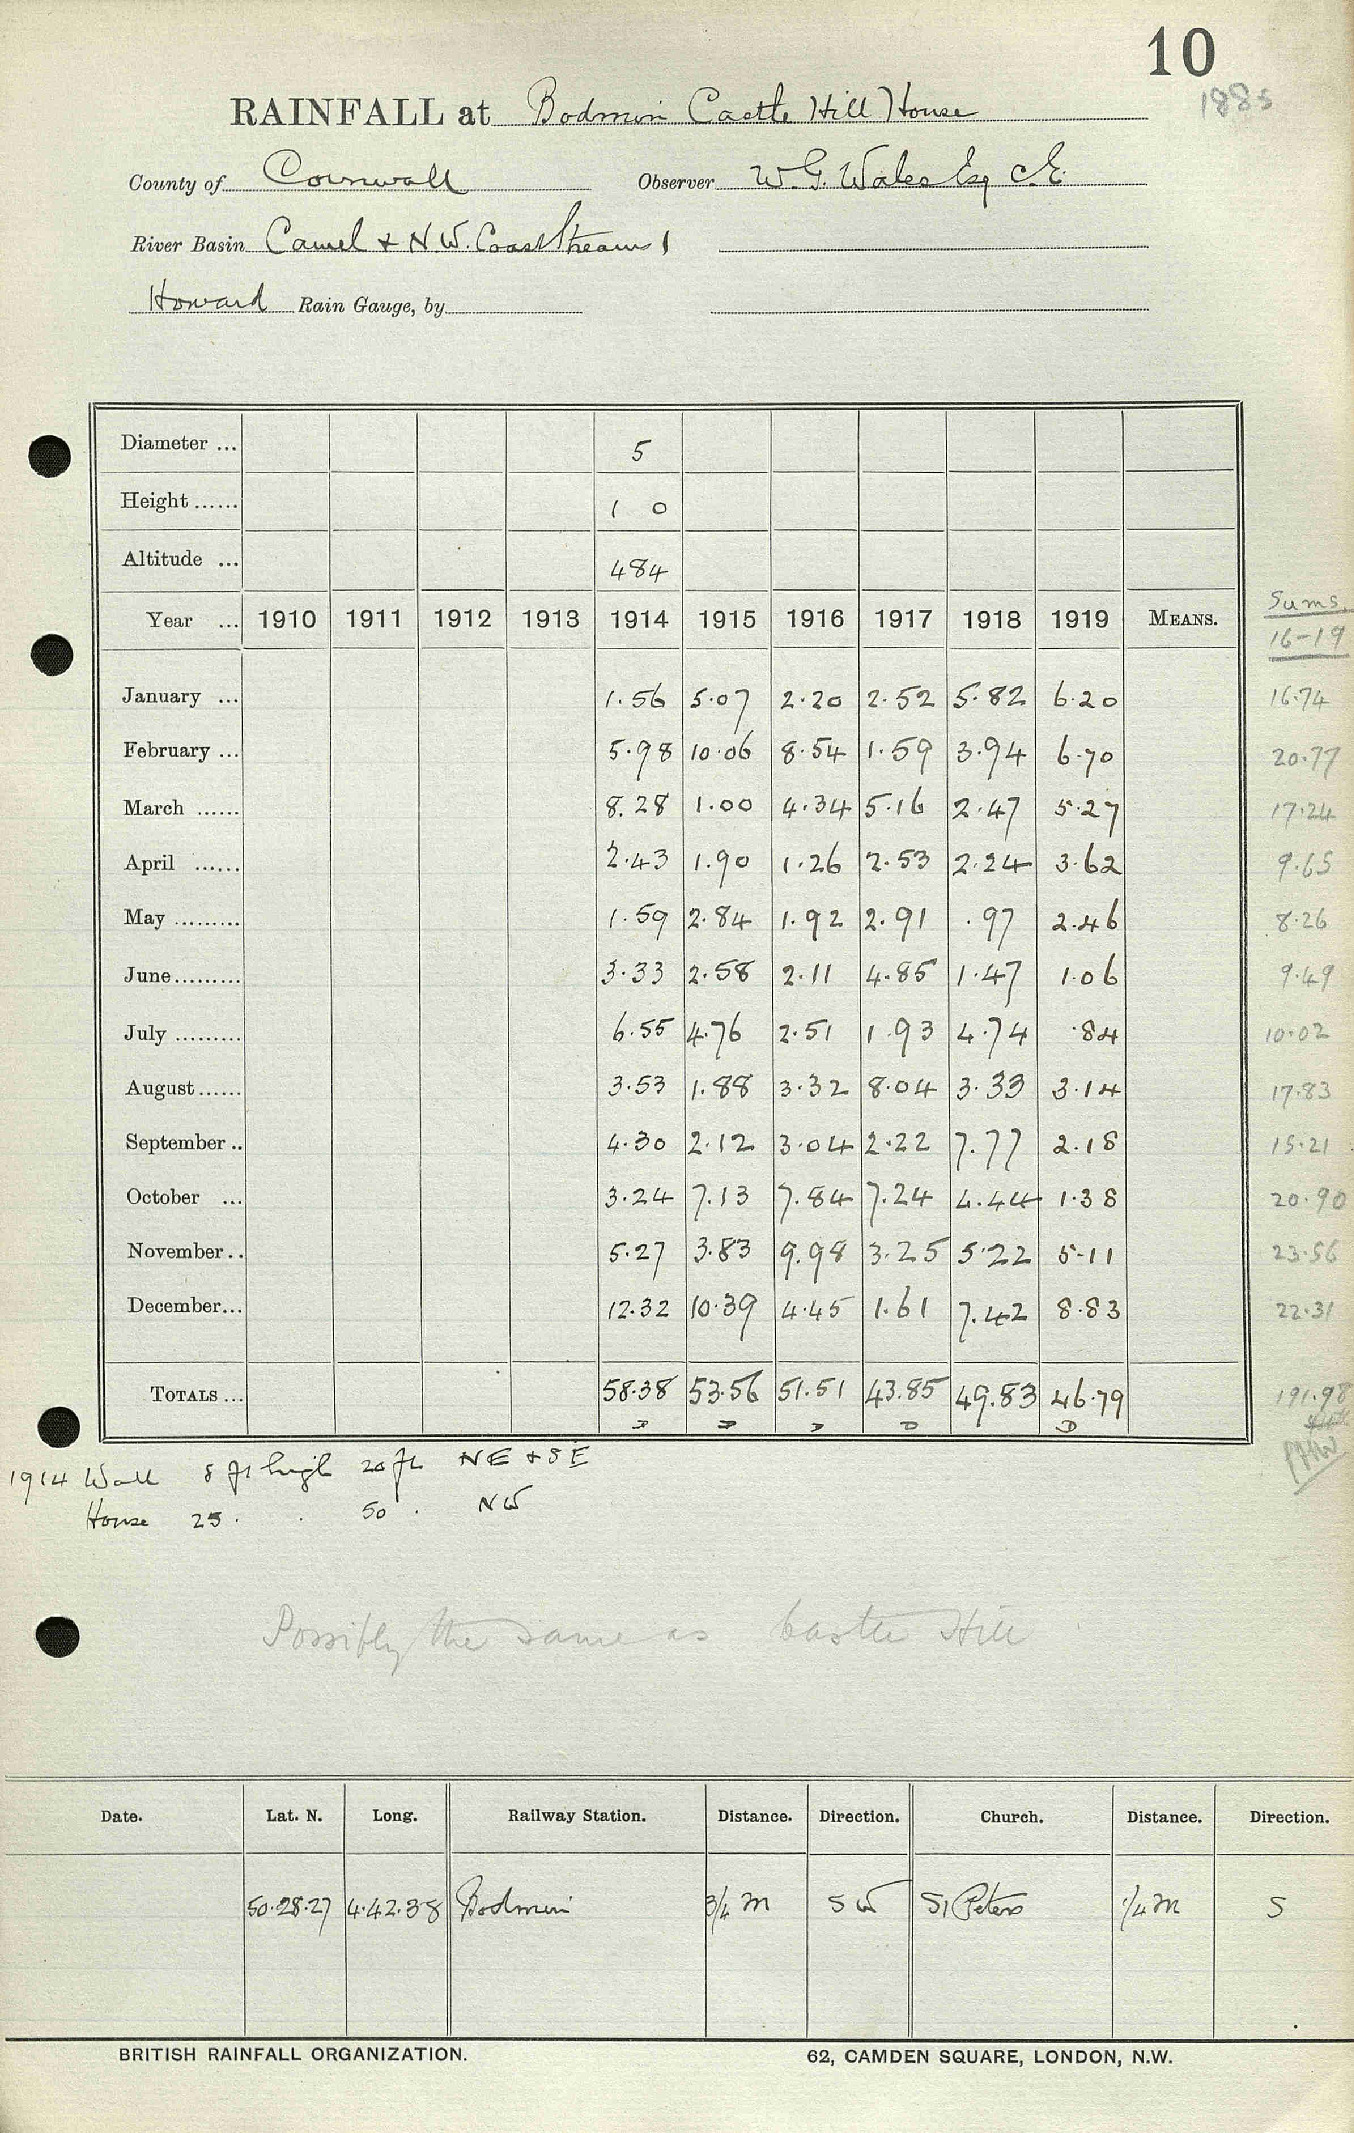 10
1885
RAINFALL at Bodmin Castle Hill House
County of Cornwall Observer W. G. Wales Esq C.E.
River Basin Camel & N.W. Coast Streams 1
Howard Rain Gauge, by
Diameter ... 5
Height ...... 1 0
Altitude ... 484
Sums
Year ... 1910 1911 1912 1913 1914 1915 1916 1917 1918 1919 MEANS. 16-19
January ... 1.56 5.07 2.20 2.52 5.82 6.20 16.74
February ... 5.98 10.06 8.54 1.59 3.94 6.70 20.77
March ...... 8.28 1.00 4.34 5.16 2.47 5.27 17.24
April ...... 2.43 1.90 1.26 2.53 2.24 3.62 9.65
May ......... 1.59 2.84 1.92 2.91 .97 2.46 8.26
June......... 3.33 2.58 2.11 4.85 1.47 1.06 9.49
July ......... 6.55 4.76 2.51 1.93 4.74 .84 10.02
August...... 3.53 1.88 3.32 8.04 3.33 3.14 17.83
September .. 4.30 2.12 3.04 2.22 7.77 2.18 15.21
October ... 3.24 7.13 7.84 7.24 4.44 1.38 20.90
November .. 5.27 3.83 9.98 3.25 5.22 5.11 23.56
December... 12.32 10.39 4.45 1.61 7.42 8.83 22.31
TOTALS ... 58.38 53.56 51.51 43.85 49.83 46.79 191.98
1914 Wall 8 ft high 20 ft NE & SE
House 25 . . 50 . NW
Possibly the same as Castle Hill
Date. Lat. N. Long. Railway Station. Distance. Direction. Church. Distance. Direction.
50.28.27 4.42.38 Bodmin 3/4 m SW St Peters 1/4 m S
BRITISH RAINFALL ORGANIZATION. 62, CAMDEN SQUARE, LONDON, N.W.